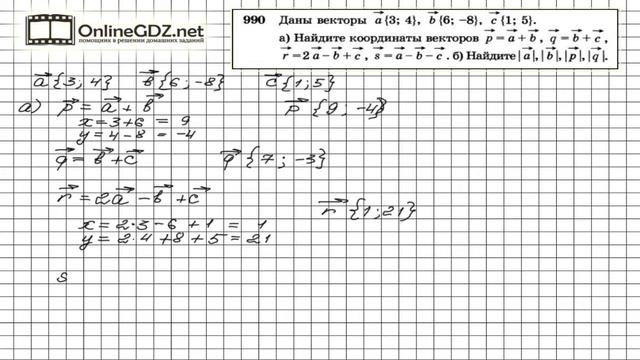 OnlineGDZ.net
помощник в решении домашних заданий
990 Даны векторы a⃗{3; 4}, b⃗{6; −8}, c⃗{1; 5}.
а) Найдите координаты векторов p⃗ = a⃗ + b⃗, q⃗ = b⃗ + c⃗,
r⃗ = 2a⃗ − b⃗ + c⃗, s⃗ = a⃗ − b⃗ − c⃗. б) Найдите |a⃗|, |b⃗|, |p⃗|, |q⃗|.
a⃗{3; 4} b⃗{6; -8} c⃗{1; 5}
а) p⃗ = a⃗ + b⃗ p⃗{9; -4}
x = 3+6 = 9
y = 4-8 = -4
q⃗ = b⃗ + c⃗ q⃗{7; -3}
r⃗ = 2a⃗ - b⃗ + c⃗ r⃗{1; 21}
x = 2·3 - 6 + 1 = 1
y = 2·4 + 8 + 5 = 21
s